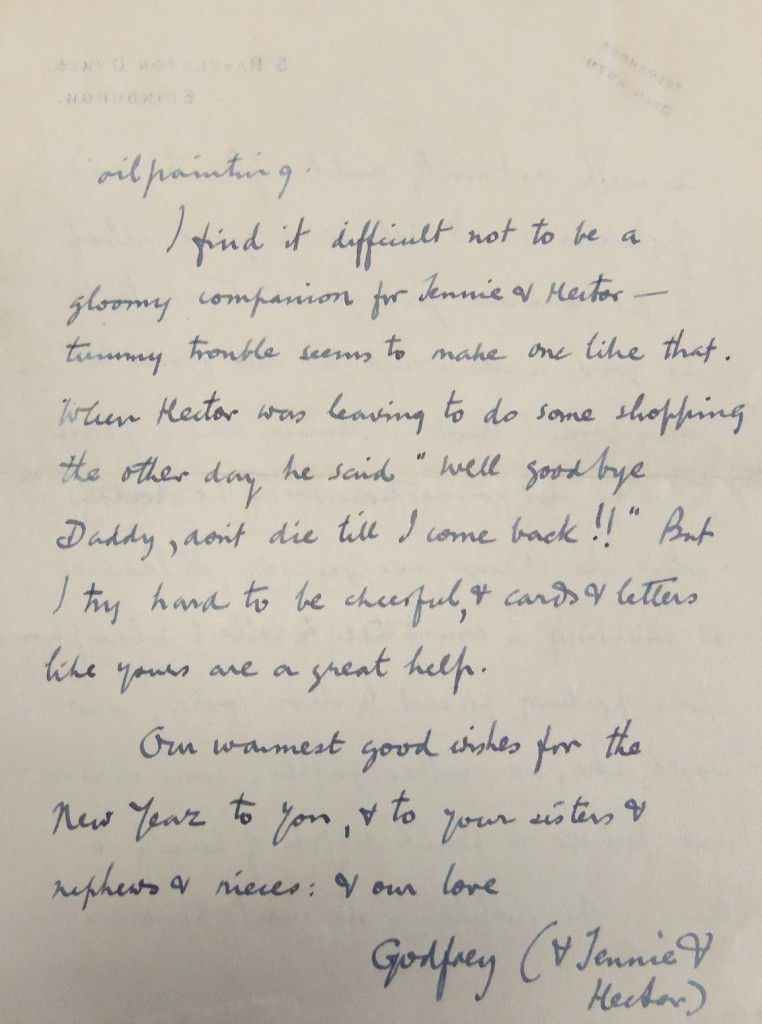 5 RAVELSTON DYKES.
EDINBURGH.
TELEPHONE
oilpainting.
I find it difficult not to be a
gloomy companion for Jennie & Hector —
tummy trouble seems to make one like that.
When Hector was leaving to do some shopping
the other day he said "Well goodbye
Daddy, don't die till I come back!!" But
I try hard to be cheerful, & cards & letters
like yours are a great help.
Our warmest good wishes for the
New Year to you, & to your sisters &
nephews & nieces: & our love
Godfrey (& Jennie &
Hector)